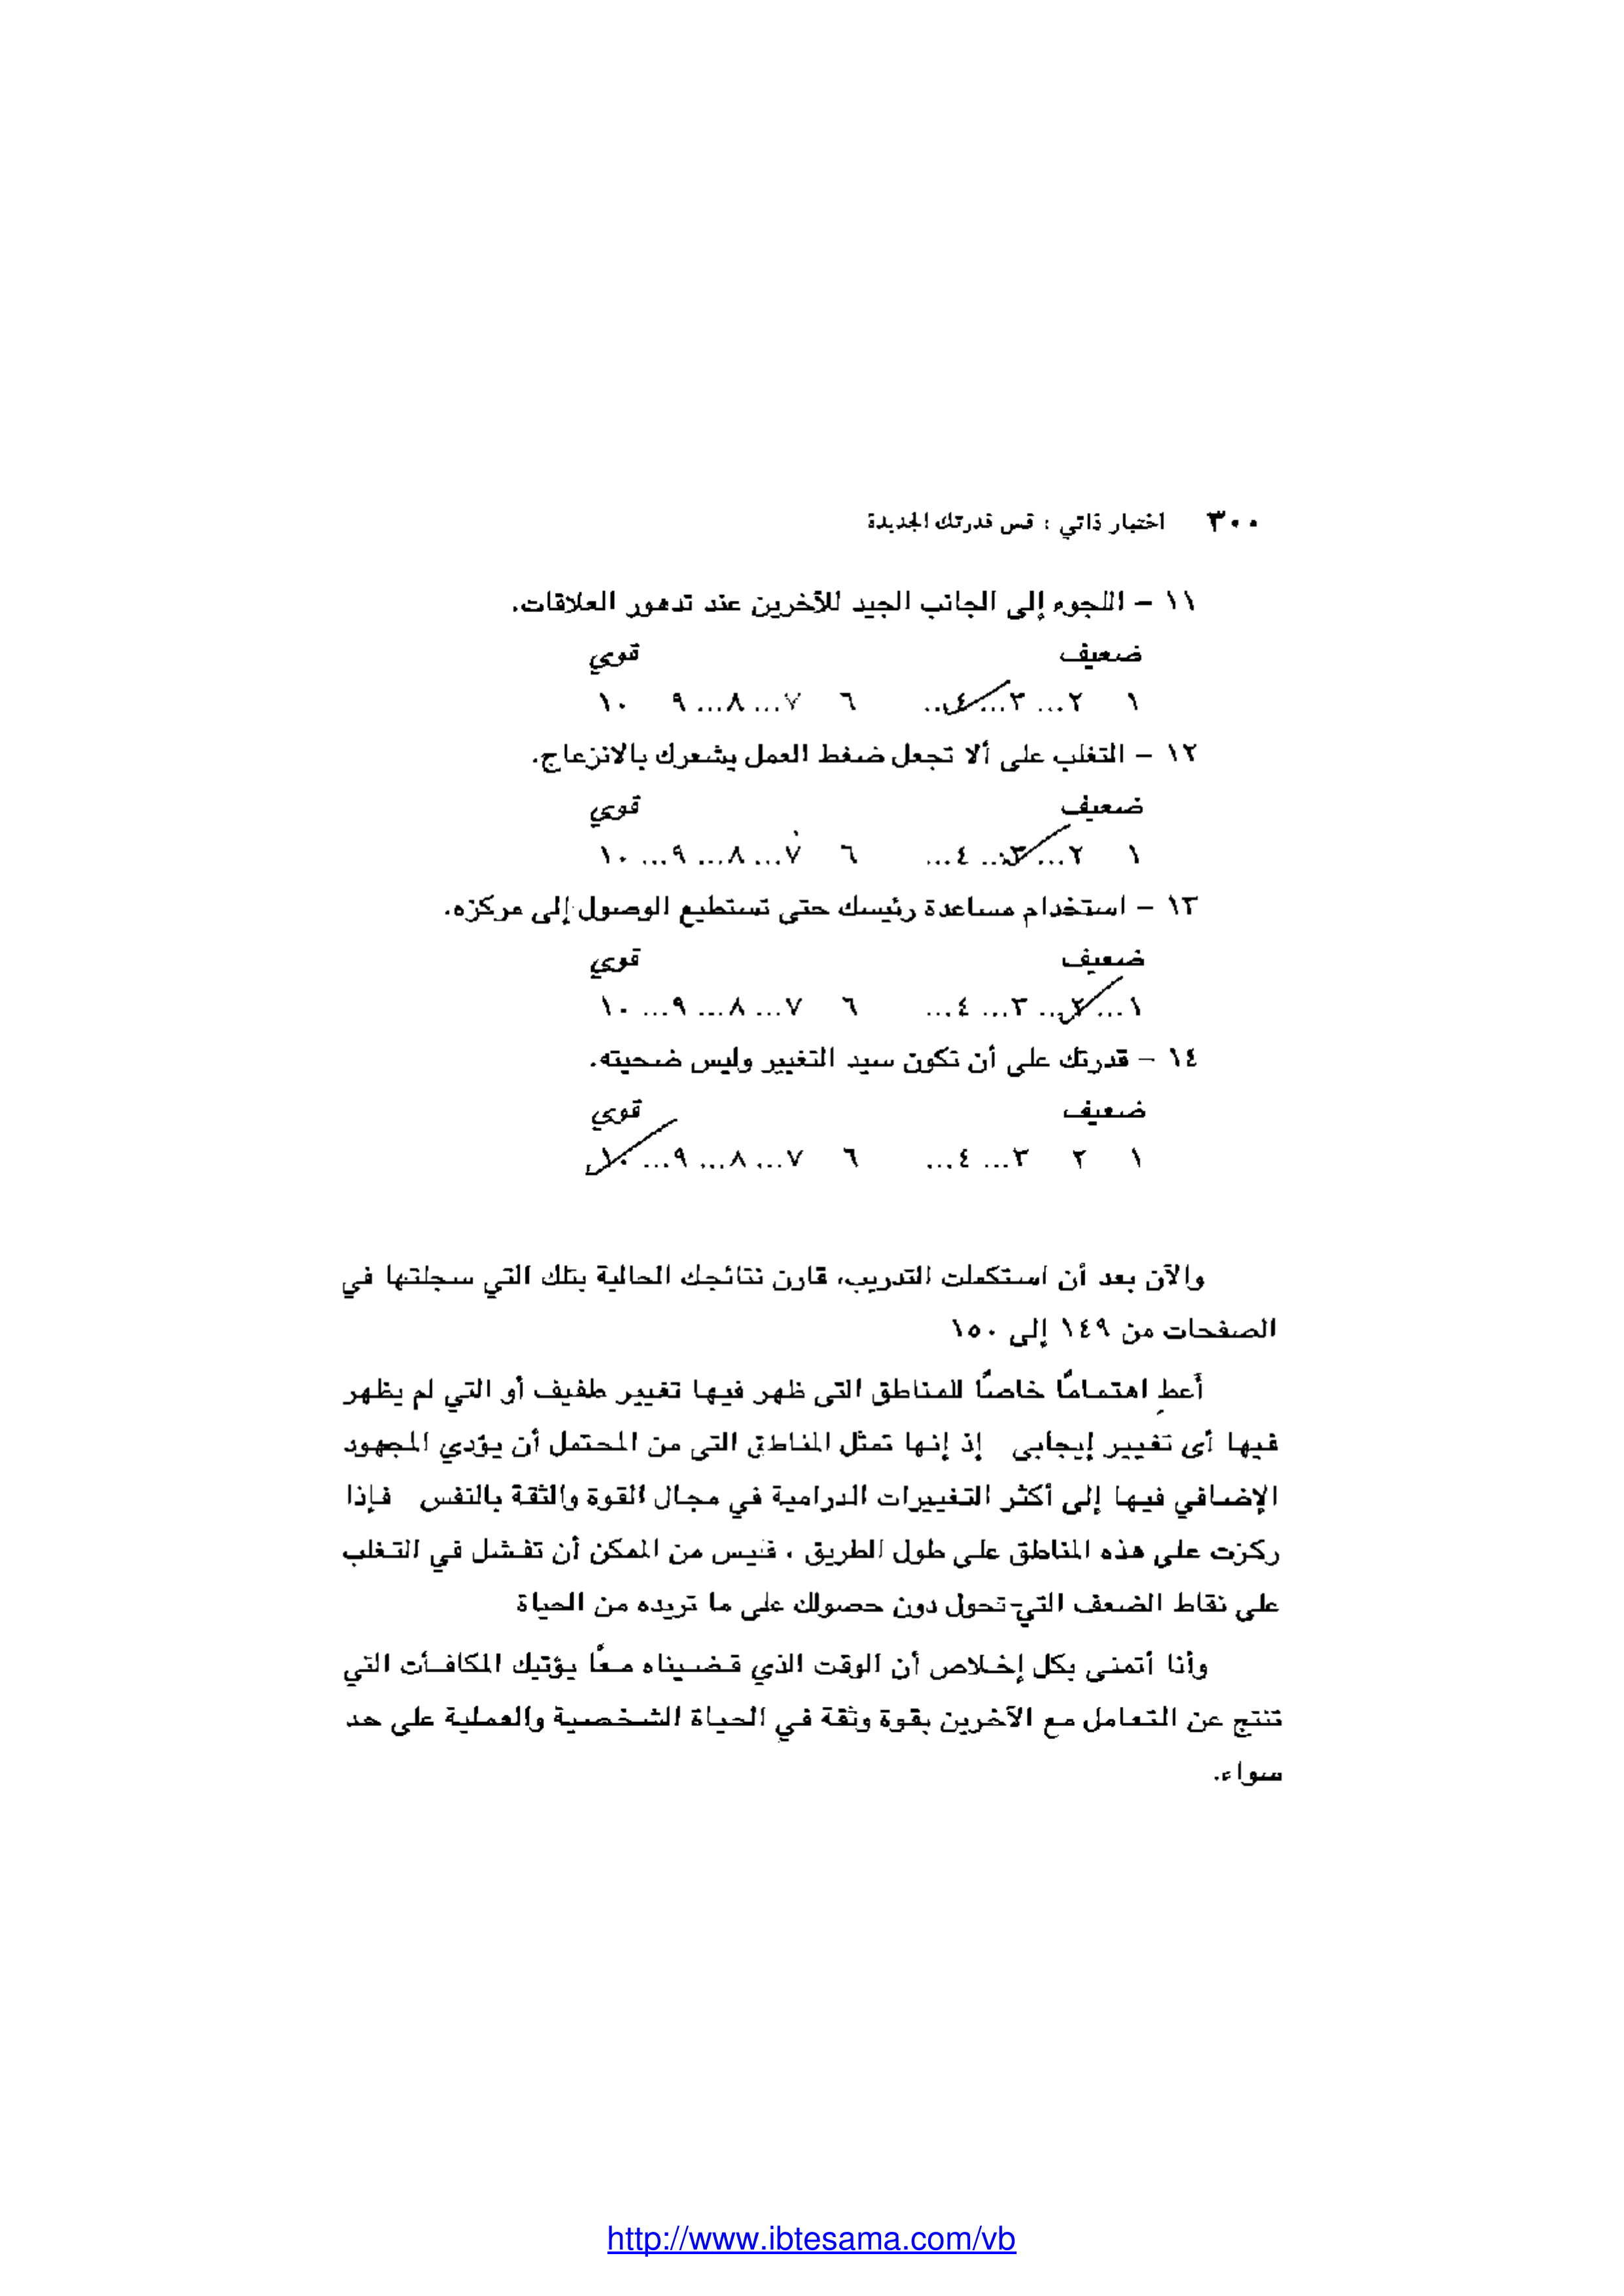 ٣٠٠ اختبار ذاتي : قس قدرتك الجديدة
١١ – اللجوء إلى الجانب الجيد للآخرين عند تدهور العلاقات.
ضعيف قوي
١ ٢... ٣... ٤... ٦ ٧... ٨... ٩ ١٠
١٢ – التغلب على ألا تجعل ضغط العمل يشعرك بالانزعاج.
ضعيف قوي
١ ٢... ٣... ٤... ٦ ٧... ٨... ٩... ١٠
١٣ – استخدام مساعدة رئيسك حتى تستطيع الوصول إلى مركزه.
ضعيف قوي
١... ٢... ٣... ٤... ٦ ٧... ٨... ٩... ١٠
١٤ – قدرتك على أن تكون سيد التغيير وليس ضحيته.
ضعيف قوي
١ ٢ ٣... ٤... ٦ ٧... ٨... ٩... ١٠
والآن بعد أن استكملت التدريب، قارن نتائجك الحالية بتلك التي سجلتها في
الصفحات من ١٤٩ إلى ١٥٠
أعطِ اهتمامًا خاصًا للمناطق التى ظهر فيها تغيير طفيف أو التي لم يظهر
فيها أى تغيير إيجابي إذ إنها تمثل المناطق التى من المحتمل أن يؤدي المجهود
الإضافي فيها إلى أكثر التغييرات الدرامية في مجال القوة والثقة بالنفس فإذا
ركزت على هذه المناطق على طول الطريق ، فليس من الممكن أن تفشل في التغلب
على نقاط الضعف التي تحول دون حصولك على ما تريده من الحياة
وأنا أتمنى بكل إخلاص أن الوقت الذي قضيناه معًا يؤتيك المكافأت التي
تنتج عن التعامل مع الآخرين بقوة وثقة في الحياة الشخصية والعملية على حد
سواء.
http://www.ibtesama.com/vb